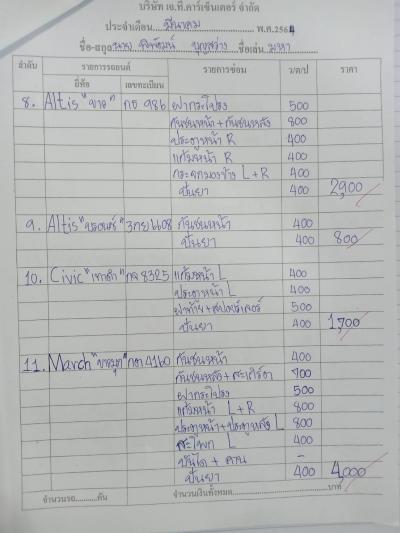 บริษัท เอ.ที.คาร์เซ็นเตอร์ จำกัด
ประจำเดือน...มีนาคม...พ.ศ.2564
ชื่อ-สกุล นาย บุญสว่าง ชื่อเล่น มหา
ลำดับ รายการรถยนต์ รายการซ่อม ว/ด/ป ราคา
ยี่ห้อ เลขทะเบียน
8. Altis "ขาว" กธ 986 ฝากระโปรง 500
กันชนหน้า+กันชนหลัง 800
ประตูหน้า R 400
แก้มหน้า R 400
กระจกมองข้าง L+R 400
ปั่นยา 400 2,900
9. Altis "บรอนซ์" 3กย 4608 กันชนหน้า 400
ปั่นยา 400 800
10. Civic "เทาดำ" กจ 8325 แก้มหน้า L 400
ประตูหน้า L 400
ฝาท้าย+สปอยเลอร์ 500
ปั่นยา 400 1,700
11. March "ขาวมุก" กตา 4160 กันชนหน้า 400
กันชนหลัง+สเกิร์ตา 700
ฝากระโปรง 500
แก้มหน้า L+R 800
ประตูหน้า+ประตูหลัง L 800
สะโพก L 400
บันได + คาน -
ปั่นยา 400 4,000
จำนวนรถ..........คัน จำนวนเงินทั้งหมด..........บาท